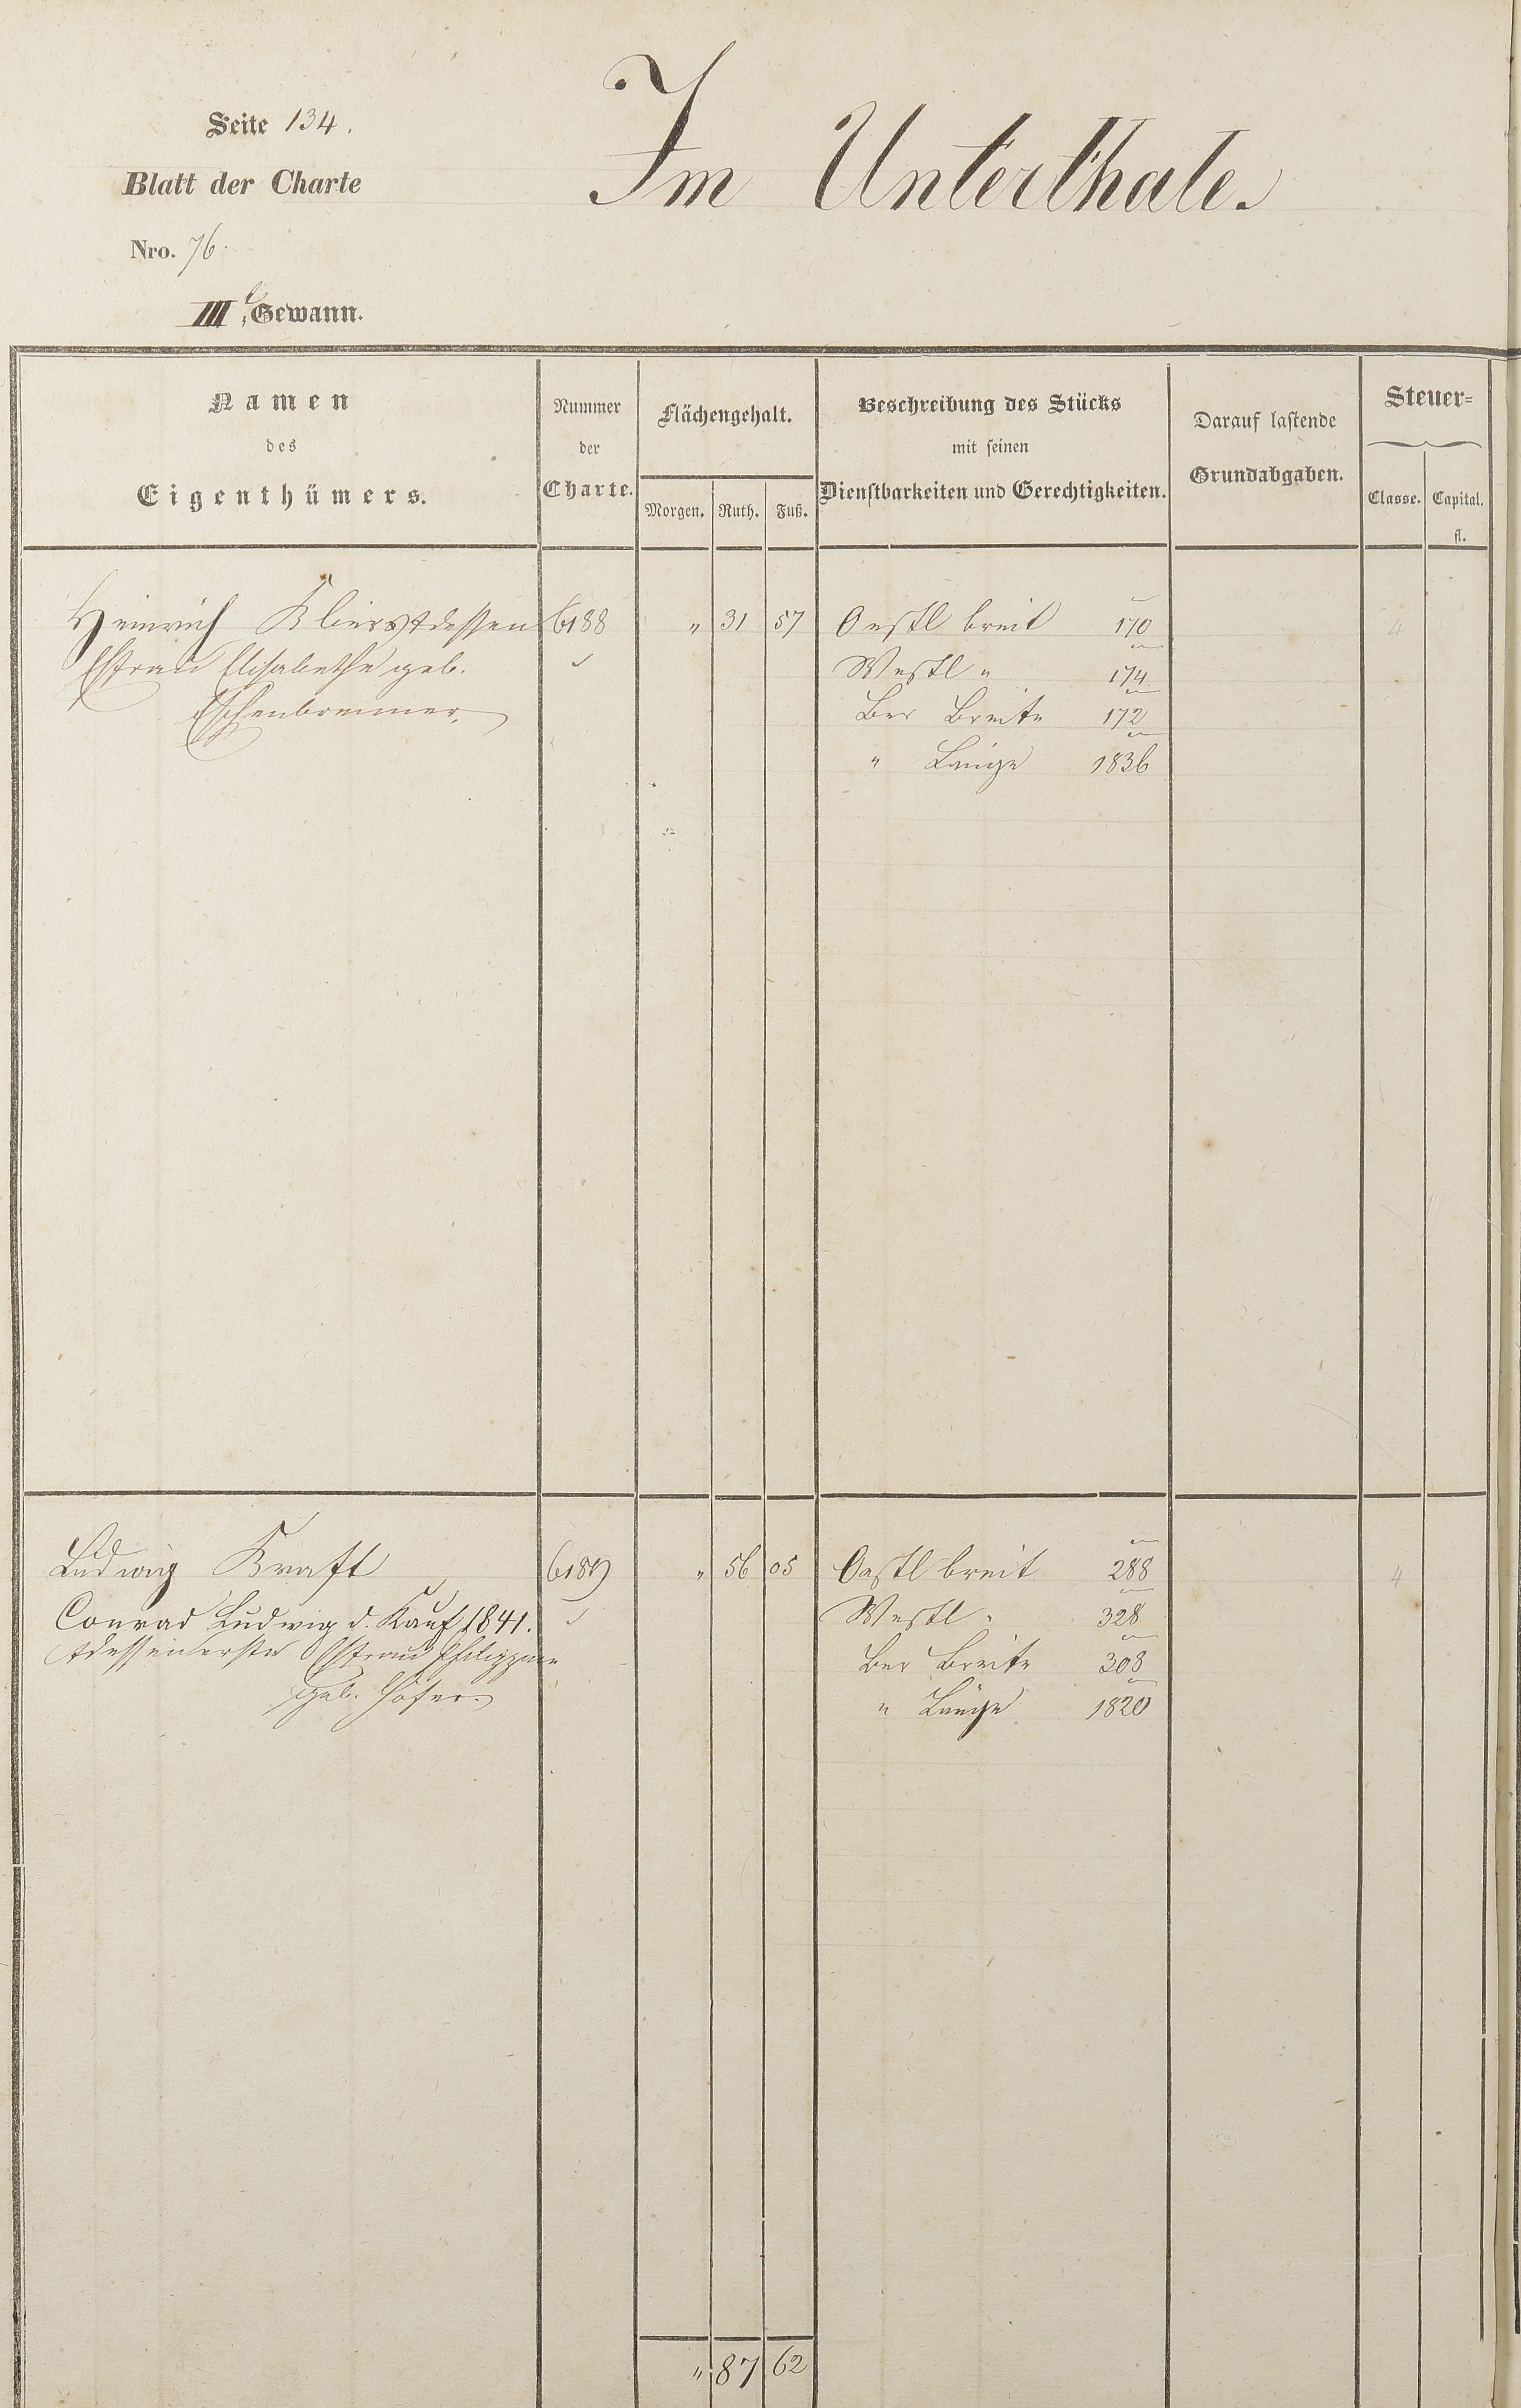 Seite 134.
Im Unterthale.
Blatt der Charte
Nro. 76.
III.te Gewann.
Namen
des
Eigenthümers.
Nummer
der
Charte.
Flächengehalt.
Morgen. Ruth. Fuß.
Beschreibung des Stücks
mit seinen
Dienstbarkeiten und Gerechtigkeiten.
Darauf lastende
Grundabgaben.
Steuer-
Classe. Capital.
fl.
Heinrich dessen 6188 " 31 57 Oestl breit 170 4
Ehfrau Elisabethe geb. Westl " 174
Eschenbrenner. Ber Breite 172
" Länge 1836
Ludwig Kraft 6189 " 56 05 Oestl breit 288 4
Conrad Ludwig d. Kauf 1841. Westl " 328
dessen erste Ehfrau Philippine Ber Breite 308
geb. Höfer. " Länge 1820
" 87 62